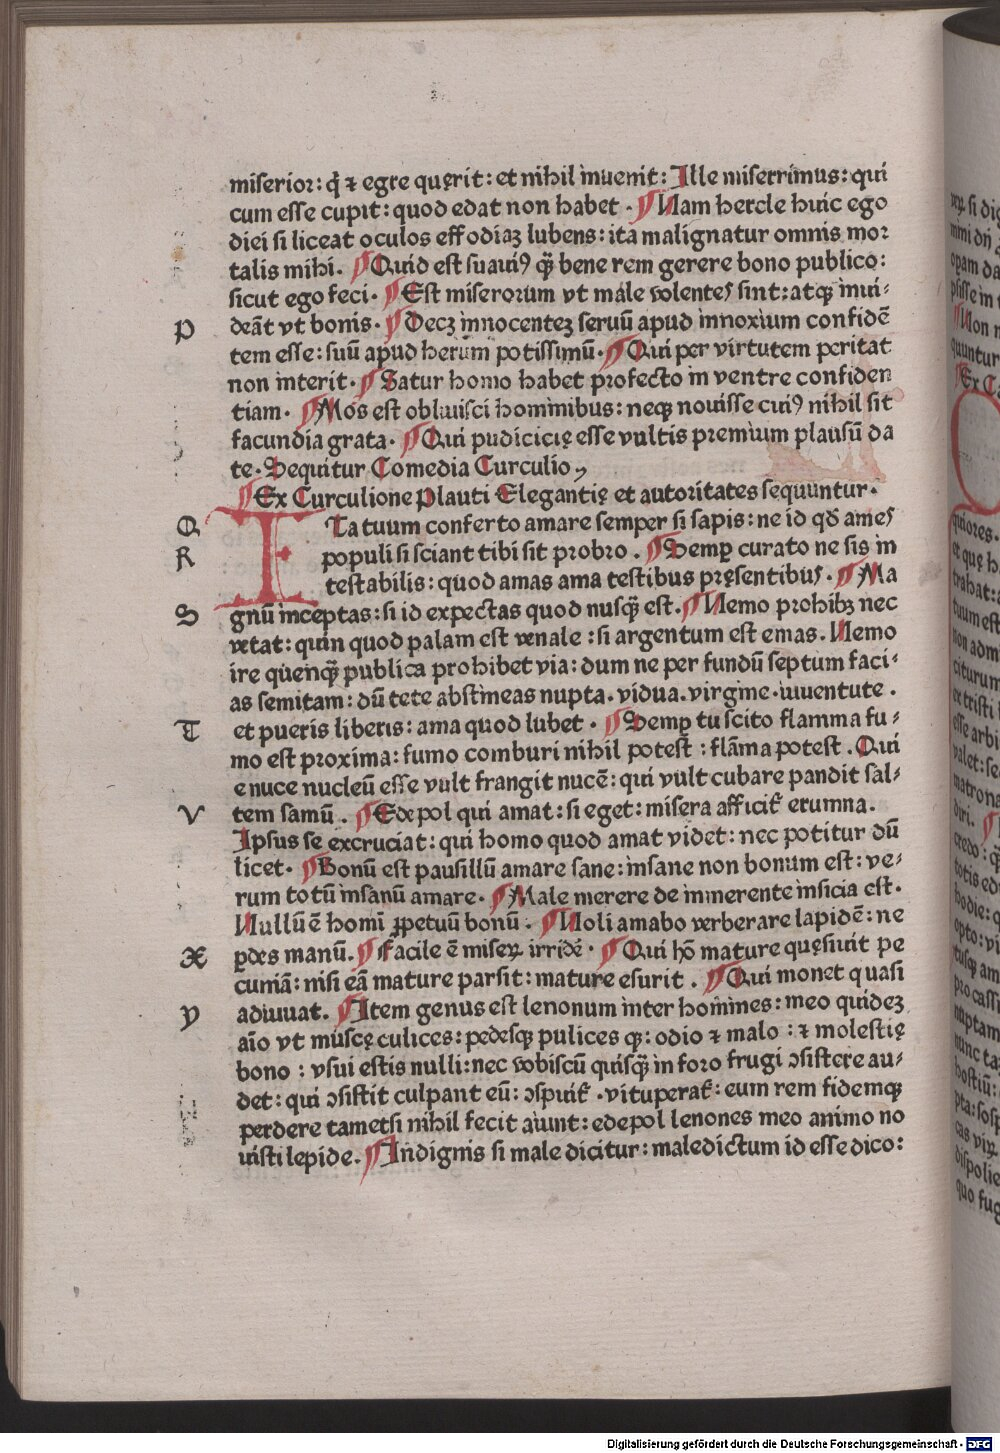 miserior: q̇ ⁊ egre quęrit: et nihil inuenit: Ille miserrimus: qui
cum esse cupit: quod edat non habet. ¶ Nam hercle huic ego
diei si liceat oculos effodiaꝫ lubens: ita malignatur omnis mor
talis mihi. ¶ Quid est suauiꝰ q̃ȝ bene rem gerere bono publico:
sicut ego feci. ¶ Est miserorum vt male volentes sint: atqꝫ inui-
P deãt vt bonis. ¶ Decꝫ innocenteꝫ seruũ apud innoxium confidẽ
tem esse: suũ apud herum potissimũ. ¶ Qui per virtutem peritat
non interit. ¶ Satur homo habet profecto in ventre confiden
tiam. ¶ Mos est obliuisci hominibus: neqꝫ nouisse cuiꝰ nihil sit
facundia grata. ¶ Qui pudicicię esse vultis premium plausũ da
te. Sequitur Comedia Curculio
¶ Ex Curculione Plauti Elegantię et autoritates sequuntur.
Q ITa tuum conferto amare semper si sapis: ne id qđ ames
R populi si sciant tibi sit probro. ¶ Semꝑ curato ne sis in
testabilis: quod amas ama testibus pręsentibus. ¶ Ma
S gnũ inceptas: si id expectas quod nusq̃ȝ est. ¶ Nemo prohibꝫ nec
vetat: quin quod palam est venale: si argentum est emas. Nemo
ire quenq̃ȝ publica prohibet via: dum ne per fundũ septum faci-
as semitam: dũ tete abstineas nupta. vidua. virgine. iuuentute.
T et pueris liberis: ama quod lubet. ¶ Semꝑ tu scito flamma fu-
mo est proxima: fumo comburi nihil potest: flãma potest. Qui
e nuce nucleũ esse vult frangit nucẽ: qui vult cubare pandit sal-
V tem samũ. ¶ Edepol qui amat: si eget: misera afficit᷑ erumna.
Ipsus se excruciat: qui homo quod amat videt: nec potitur dũ
licet. ¶ Bonũ est pausillũ amare sane: insane non bonum est: ve-
rum totũ insanũ amare. ¶ Male merere de inmerente inscicia est.
Nullũ ẽ homi ꝓpetuũ bonũ. ¶ Noli amabo verberare lapidẽ: ne
X ꝑdes manũ. ¶ Facile ẽ miseꝝ irridẽ. ¶ Qui hõ mature quęsiuit pe
cuniã: nisi eã mature parsit: mature esurit. ¶ Qui monet quasi
Y adiuuat. ¶ Item genus est lenonum inter homines: meo quideꝫ
aĩo vt muscę culices: pedesqꝫ pulices qꝫ: odio ⁊ malo: ⁊ molestię
bono: vsui estis nulli: nec vobiscũ quisq̃ȝ in foro frugi ↄsistere au-
det: qui ↄsistit culpant eũ: ↄspuit᷑. vituperat᷑: eum rem fidemqꝫ
perdere tametsi nihil fecit aiunt: edepol lenones meo animo no
uisti lepide. ¶ Indignis si male dicitur: maledictum id esse dico:
Digitalisierung gefördert durch die Deutsche Forschungsgemeinschaft - DFG